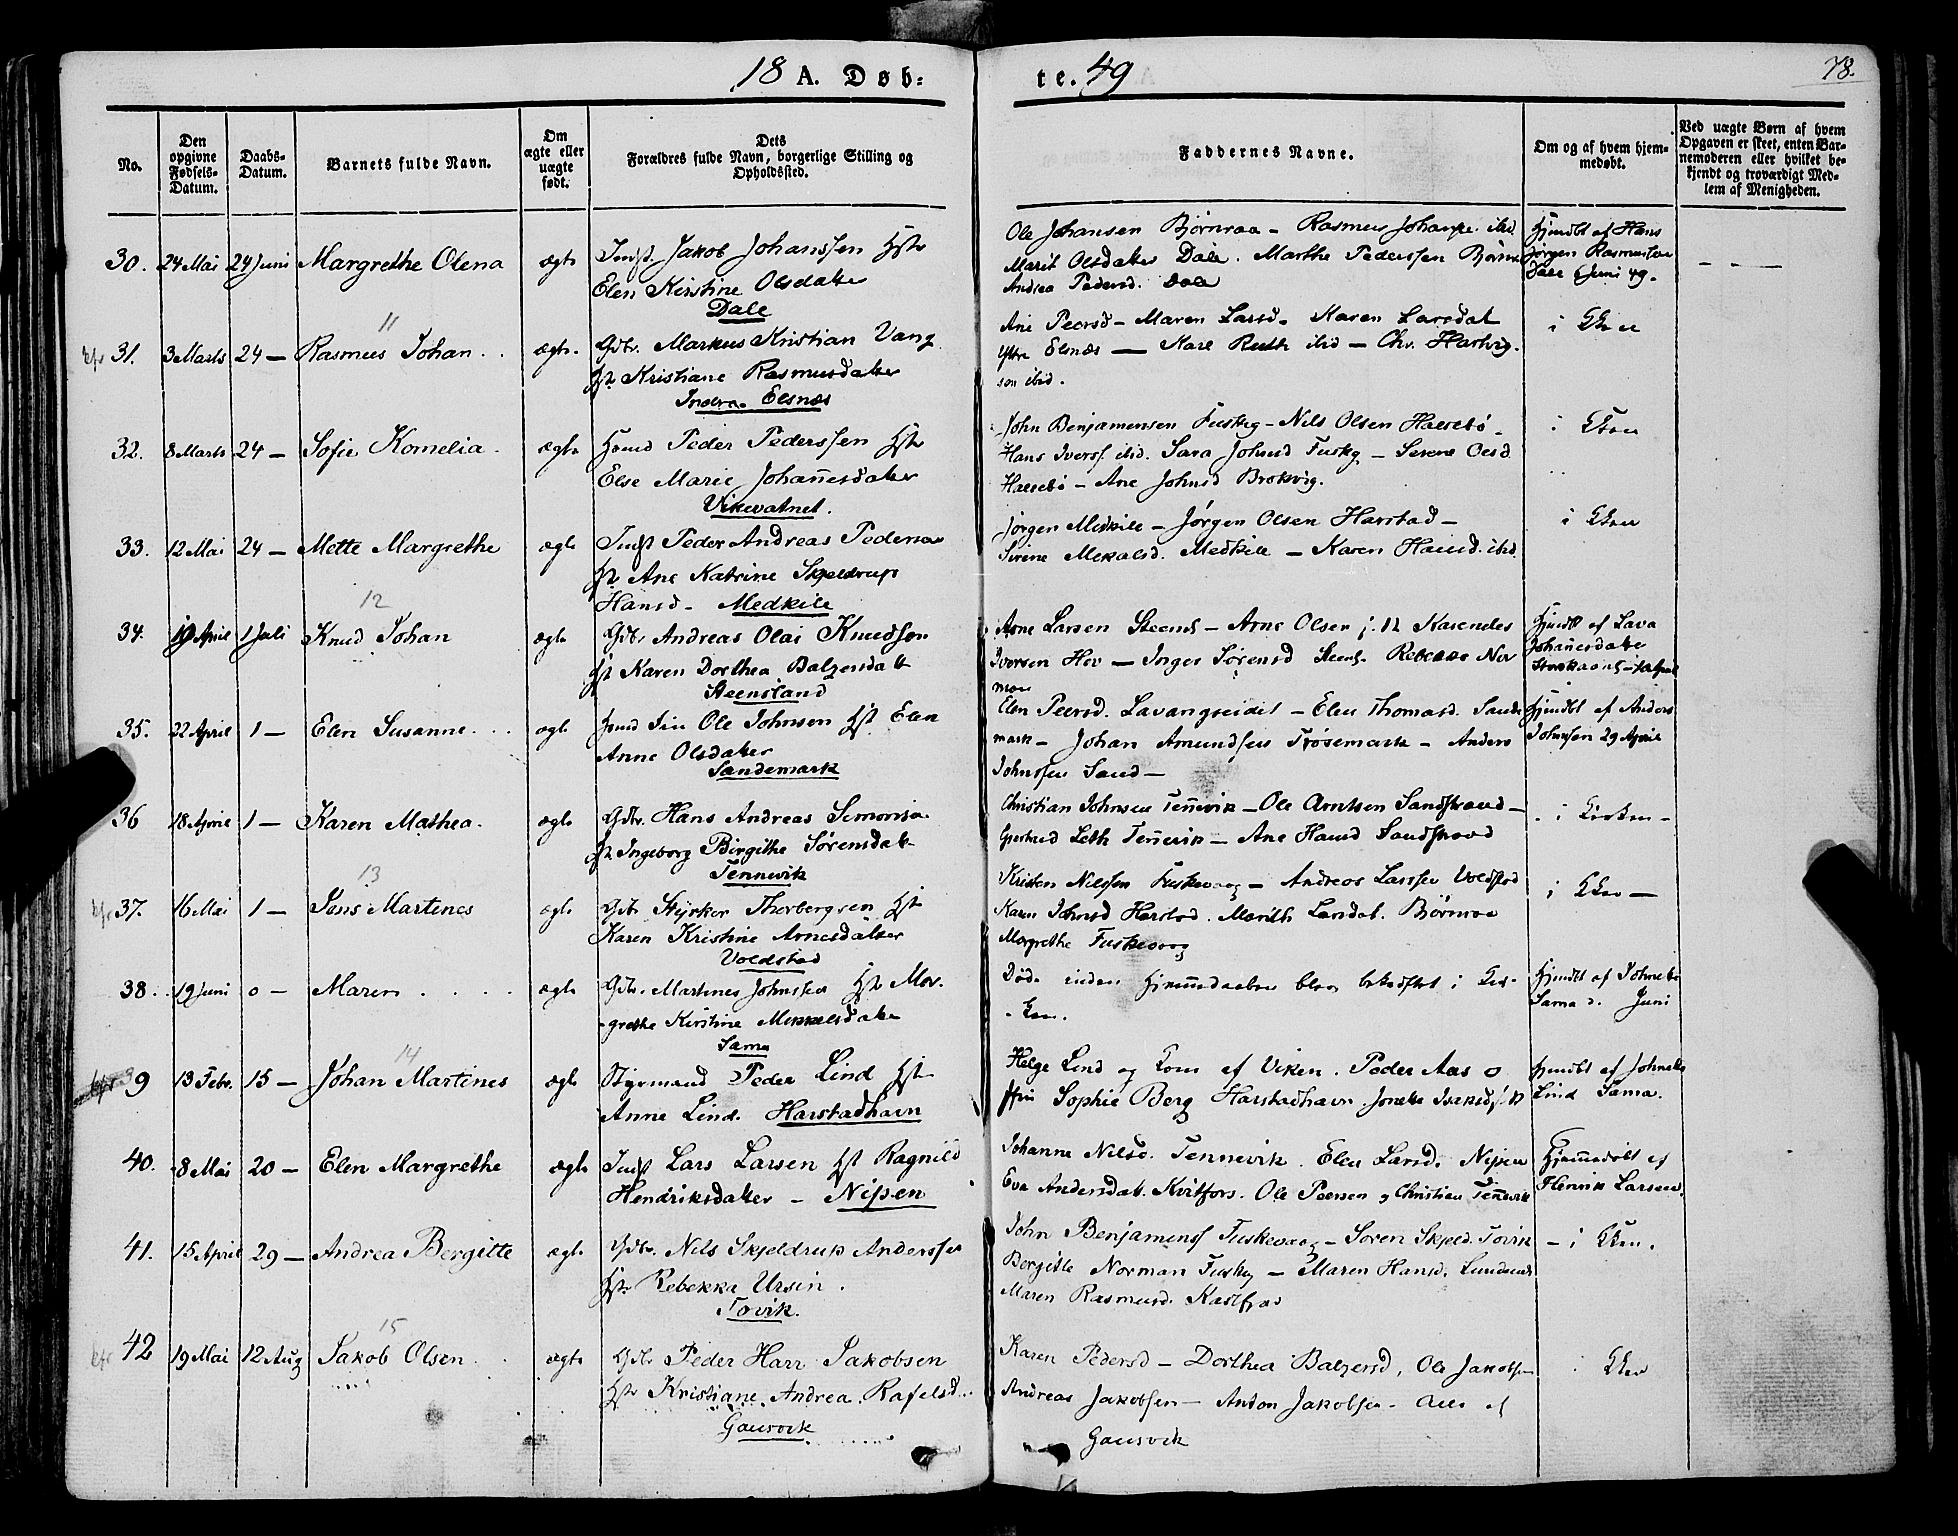 18 A. Døb:
te. 49
78.
No.
Den opgivne Fødsels-Datum.
Daabs-Datum.
Barnets fulde Navn.
Om ægte eller uægte født.
Dets Forældres fulde Navn, borgerlige Stilling og Opholdssted.
Faddernes Navne.
Om og af hvem hjemmedøbt.
Ved uægte Børn af hvem Opgaven er skeet, enten Barnemoderen eller hvilket bekjendt og troværdigt Medlem af Menigheden.
30. 24 Mai 24 Juni Margrethe Olena ægte Indst Jakob Johanssen Hst
Elen Kirstine Olsdatter
Dale
Ole Johansen Bjørnraa - Rasmus Johanse. ibid
Marit Olsdatter Dale. Marthe Pederssen Bjørnr
Andrea Pedersd. Dale
Hjmdbt af Hans
Jørgen Rasmussen
Dale 6 Juni 49.
11
31. 3 Marts 24 - Rasmus Johan ægte. Gdbr. Markus Kristian Vang
Hst Kristiane Rasmusdatter
Indre Elsnæs
Ane Peersd - Maren Larsd. Karen Larsdat
Yttre Elsnæs - Karl Ruth ibid - Chr. Hartvig.
son ibid.
i Kken
32. 8 Marts 24 - Sofie Kornelia. ægte Hmd Peder Pederssen Hst
Else Marie Johannesdatter
Vikevatnet.
John Benjamensen Fuskeg - Nils Olsen Halsebø -
Hans Iverss ibid. Sara Johnsd Fuskeg - Serene Olsd
Halsebø - Ane Johnsd Brokvig.
i Kken
33. 12 Mai 24 - Mette Margrethe ægte Indst Peder Andreas Pedersen
Hst Ane Katrine Skjeldrup
Hansd - Medkile
Jørgen Medkile - Jørgen Olsen Harstad -
Sirine Mekalsd. Medkile - Karen Hansd. ibid.
i Kken
12
34. 19 April 1 Juli Knud Johan ægte Gdbr Andreas Olai Knudsen
Hst Karen Dorthea Balzersdatt
Steensland
Arne Larsen Steensl - Arne Olsen
Iversen Hov - Inger Sørensd Steensl. Rebekka Nor
man
Hjmdbt af Lava
Johannesdatter
35. 22 April 1 - Elen Susanne ægte Hmd Fin Ole Johnsen Hst Elen
Anne Olsdatter
Sandemark
Elen Peersd. Lavangseidet - Elen Thomasd. Sande
mark - Johan Amundsen Trøsemark - Anders
Johnssen Sand -
Hjmdbt af Anders
Johnsen 29 April
36 18 April 1 - Karen Mathea. ægte Gdbr. Hans Andreas Simonsen
Hst Ingeborg Birgithe Sørensdat
Tennevik
Christian Johnsen Tennevik - Ole Arntsen Sandstrand -
Gjertrud Leth Tennevik - Ane Hansd Sandstrand
i Kirken -
13
37. 16 Mai 1 - Jens Martines ægte Gdbr Styrker Thorbergsen Hst
Karen Kristine Arnesdatter
Voldstad
Kristen Nilssen Fuskevaag - Andreas Larssen Voldstad
Karen Johnsd Harstad. Marith Larsdat. Bjørnraa
Margrethe Fuskevaag
i Kken -
38. 19 Juni 0 - Maren ægte Gdbr. Martines Johnssen Hst Mar.
grethe Kirstine Mikkelsdatter
Sama
Døde inden Hjemmedaaben blev bekræftet i Kir-
ken.
Hjmdbt af Johnete
Sama d. Juni
14
39 13 Febr. 15 - Johan Martines ægte Styrmand Peder Lind Hst
Anne Lind. Harstadhavn
Helge Lind og Kone af Viken. Peder Aas o
Sophie Berg Harstadhavn.
Hjmdbt af Johnete
Lind Sama.
40. 8 Mai 20 - Elen Margrethe ægte Indst Lars Larsen Hst Ragnild
Hendriksdatter - Nipen
Johanne Nilsd. Tennevik. Elen Larsd. Nipen
Eva Andersdat. Kvitfors. Ole Peersen og Christian Tennevik
Hjemmedøbt af
Henrik Larsen.
41. 15 April 29 - Andrea Bergitte ægte Gdbr. Nils Skjeldrup Anderssen
Hst Rebekka Ursin.
Tovik.
John Benjamenss Fuskevaag - Søren Skjeld. Tovik
Bergitte Norman Fuskeg - Maren Hansd. Lundenes
Maren Rasmusd. Kastfjod
- i Kken.
15
42 19 Mai 12 Aug Jakob Olsen ægte Gdbr Peder Harr Jakobsen
Hst Kristiane Andrea Rafelsd
Gausvik
Karen Pedersd - Dorthea Balzersd, Ole Jakobsen
Andreas Jakobsen - Anton Jakobsen - alle af
Gausvik
i Kken